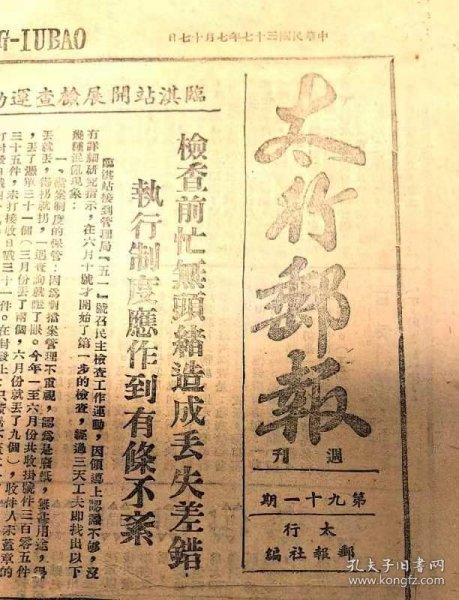 G-IUBAO
中華民國三十七年七月十七日
太行郵報
週刊
第九十一期
太行
郵報社編
臨淇站開展檢查運
檢查前忙無頭緒造成丟失差錯
執行制度應作到有條不紊
臨淇站接到管理局『五一』號召民主檢查工作運動，因領導上認識不够，沒
有詳細研究指示，在六月十號才開始了第一步的檢查，經過三天工夫即找出以下
幾種混亂現象：
一、檔案制度的保管：因為對檔案管理不重視，認為是廢紙，無甚用途，
丟就丟，拐就拐，一遇查詢就瞪了眼。今年一至六月份共收掛號件三百零五件
，丟了憑單三十一個（三月份丟了兩個，六月份就丟了九個），收件人未蓋章的
三十五件，未打接收日戳三十一件。在封發上：只
孔夫子旧书网
www.kongfz.com